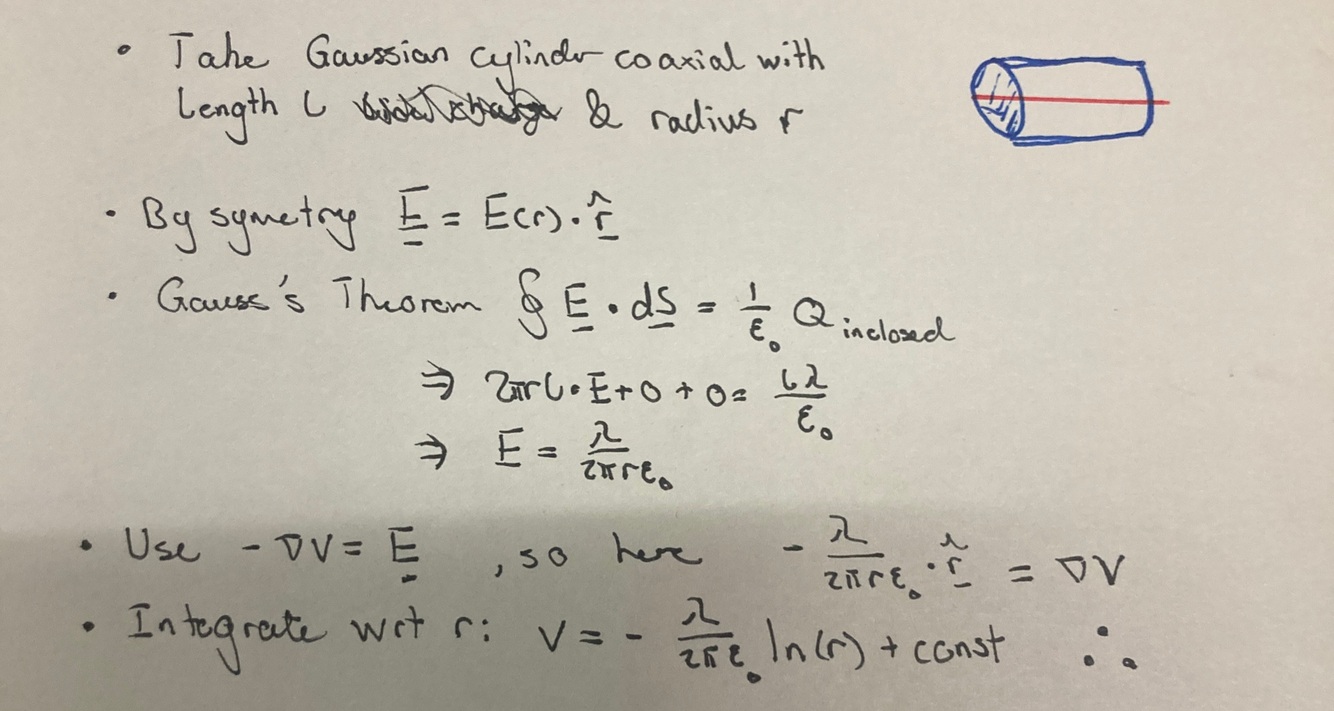 • Take Gaussian cylinder coaxial with
Length L & radius r
• By symetry E̲ = E(r)·r̲̂
• Gauss's Theorem ∮ E̲ · dS̲ = 1/ε₀ Q inclosed
⇒ 2πrL·E + 0 + 0 = Lλ/ε₀
⇒ E = λ/2πrε₀
• Use -∇V = E̲ , so here - λ/2πrε₀ · r̲̂ = ∇V
• Integrate wrt r: V = - λ/2πε₀ ln(r) + const ∴